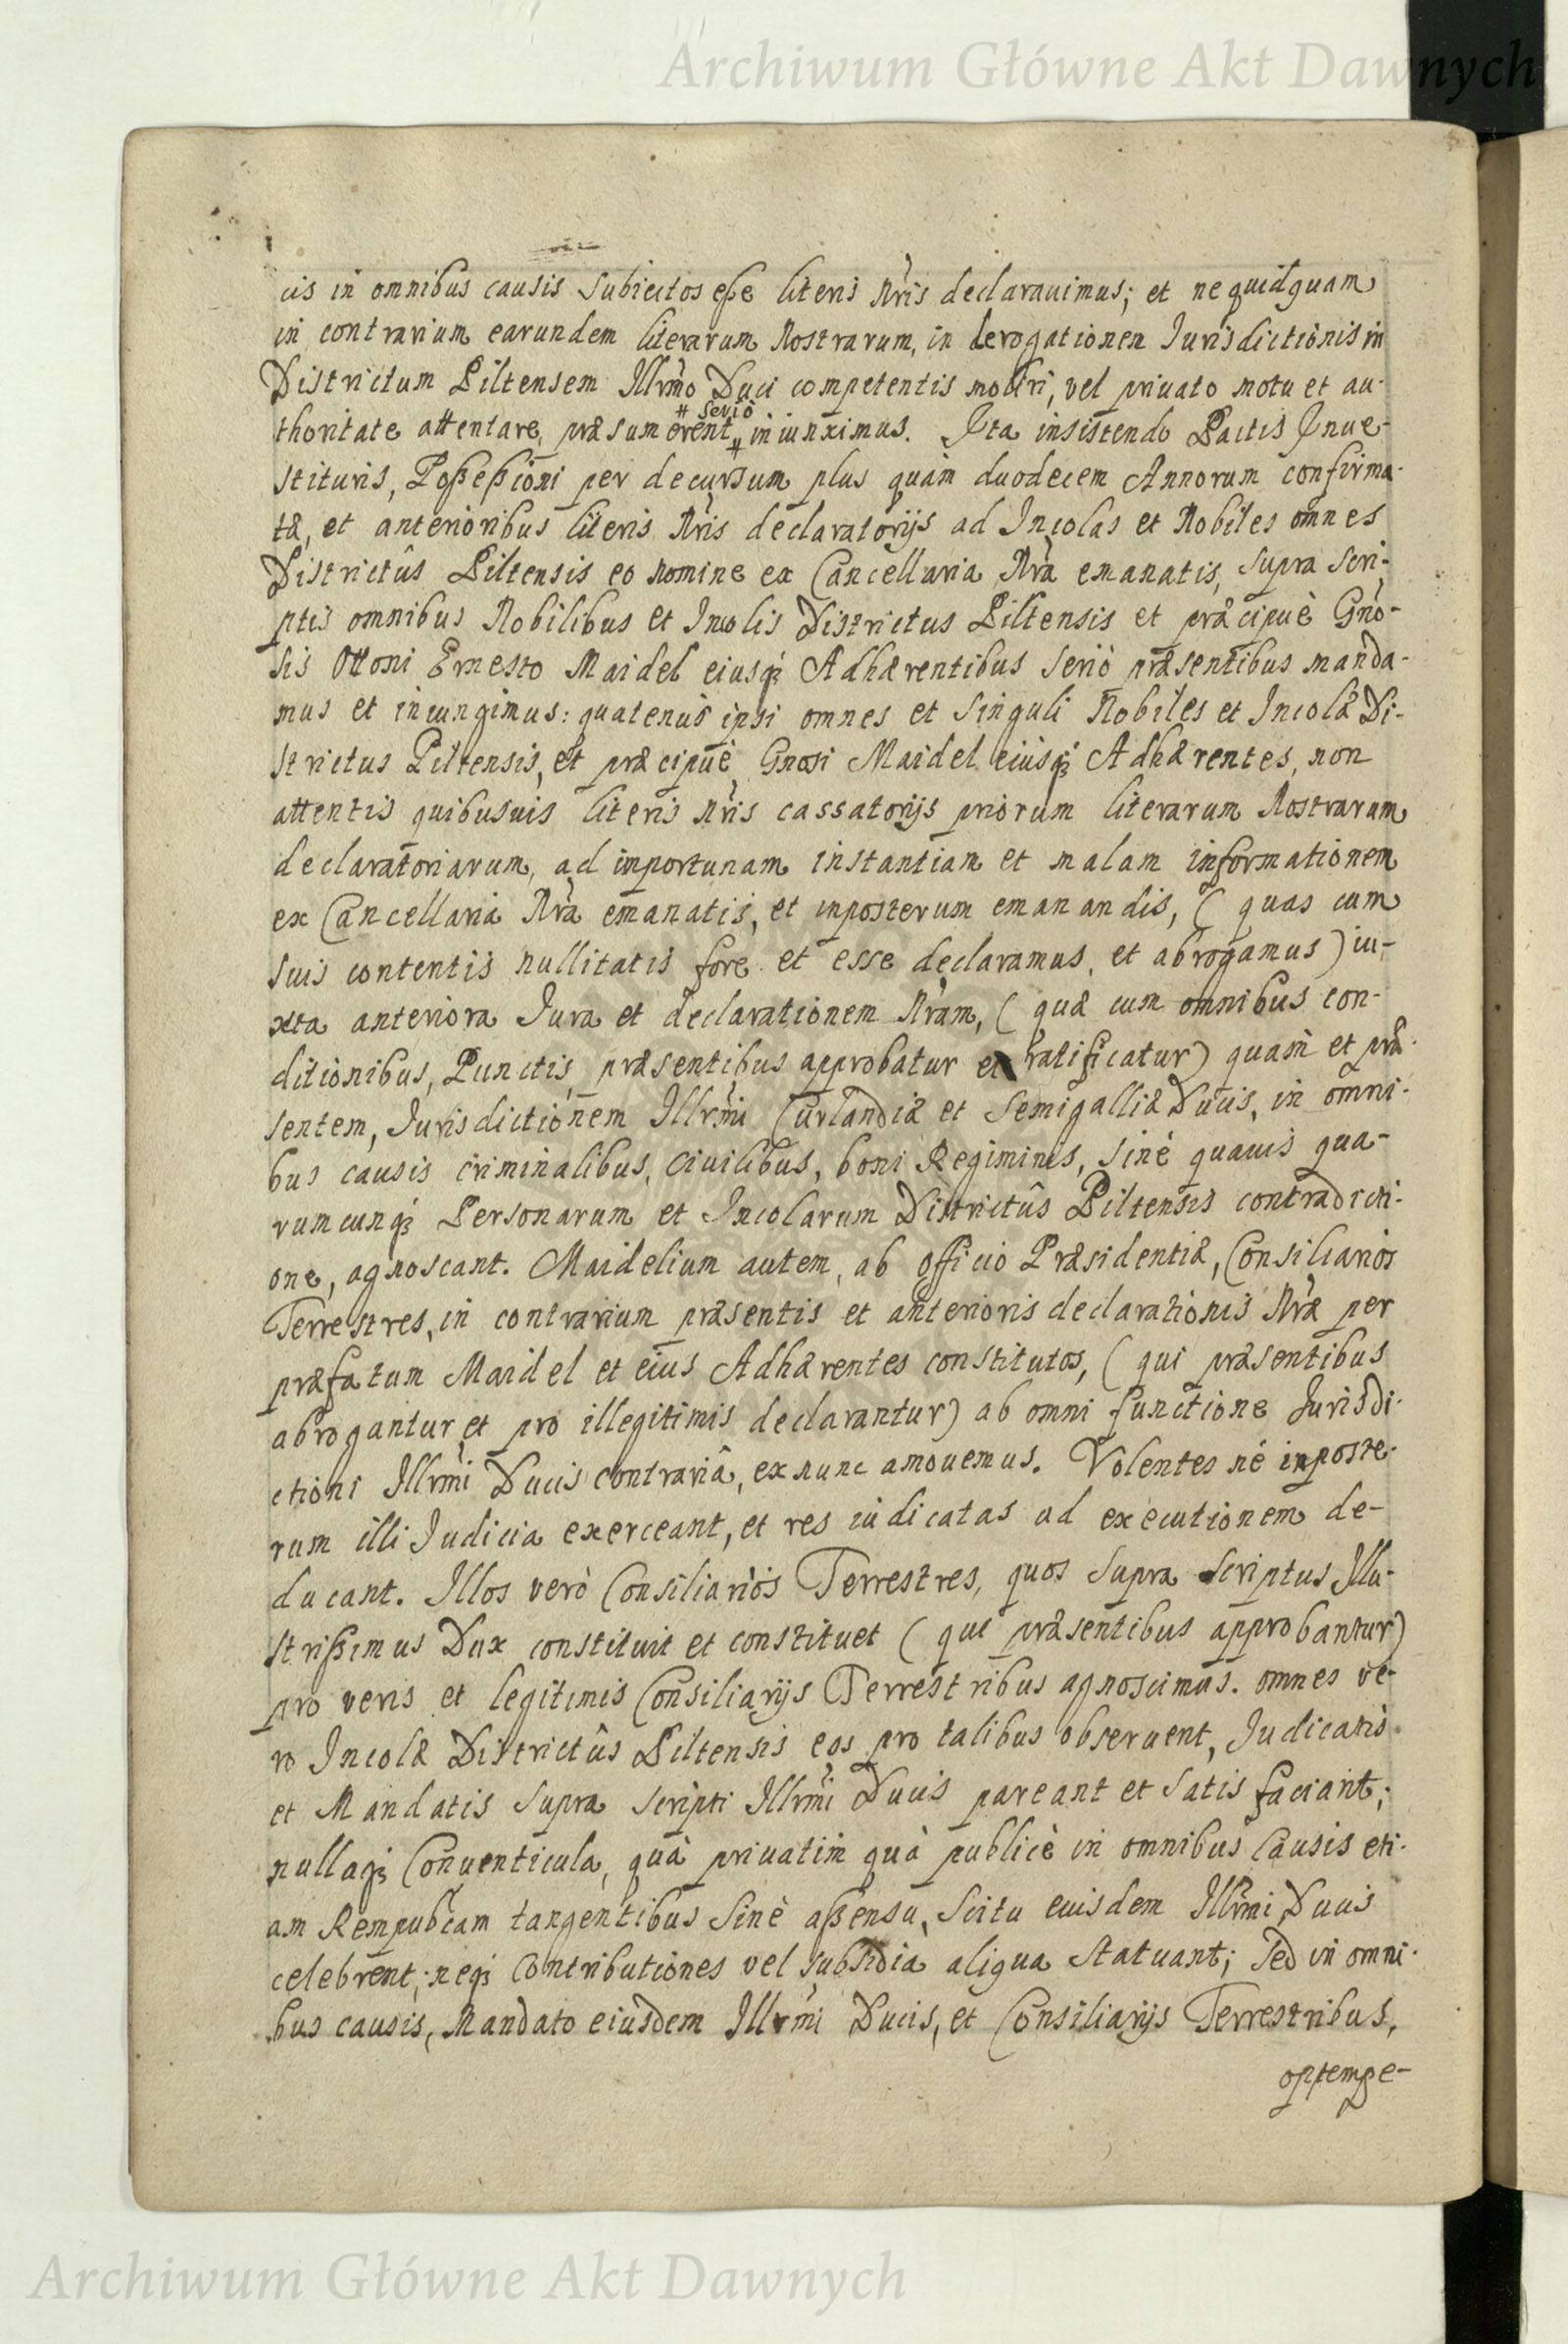 Archiwum Główne Akt Dawnych
cis in omnibus causis subiectos eße literis Nr̃is declarauimus; et ne quidquam
in contrarium earundem literarum Nostrarum, in derogationem Iurisdictionis in
Districtum Piltensem Illrm̃o Duci competentis moliri, vel priuato motu et au-
# seriò
thoritate attentare, præsumerent # iniunximus. Ita insistendo Pactis Inue-
stituris, Poßeßioni per decursum plus quàm duodecem Annorum confirma-
tæ, et anterioribus literis Nr̃is declaratorijs ad Incolas et Nobiles omnes
Districtûs Piltensis eo nomine ex Cancellaria Nr̃a emanatis, supra scri-
ptis omnibus Nobilibus et Incolis Districtus Piltensis et præcipuè Gño-
sis Ottoni Ernesto Maidel eiusq́ꝫ Adhærentibus seriò præsentibus manda-
mus et iniungimus: quatenus ipsi omnes et singuli Nobiles et Incolæ Di-
strictus Piltensis, et præcipuè Gnosi Maidel eiusq́ꝫ Adhærentes, non
attentis quibusuis literis Nr̃is cassatorijs priorum literarum Nostrarum
declaratoriarum, ad importunam instantiam et malam informationem
ex Cancellaria Nr̃a emanatis, et inposterum emanandis, ( quas cum
suis contentis nullitatis fore et esse declaramus, et abrogamus) iu-
xta anteriora Iura et declarationem Nr̃am, ( quæ cum omnibus con-
ditionibus, Punctis, præsentibus approbatur et ratificatur) quàm et præ-
sentem, Iurisdictionem Illrm̃i Curlandiæ et Semigalliæ Ducis, in omni-
bus causis criminalibus, Ciuilibus, boni Regiminis, sinè quauis qua-
rumcunq́ꝫ Personarum et Incolarum Districtûs Piltensis contradicti-
one, agnoscant. Maidelium autem, ab officio Præsidentiæ, Consiliarios
Terrestres, in contrarium præsentis et anterioris declarationis Nr̃æ per
præfatum Maidel et eius Adhærentes constitutos, ( qui præsentibus
abrogantur et pro illegitimis declarantur) ab omni functione Jurisdi-
ctioni Illrm̃i Ducis contrariâ, ex nunc amouemus. Volentes nè inposte-
rum illi Iudicia exerceant, et res iudicatas ad executionem de-
ducant. Illos verò Consiliariòs Terrestres, quos supra scriptus Illu-
strißimus Dux constituit et constituet ( qui præsentibus approbantur)
pro veris et legitimis Consiliarijs Terrestribus agnoscimus. omnes ve-
ro Incolæ Districtûs Piltensis eos pro talibus obseruent, Iudicatis
et Mandatis supra scripti Illrm̃i Ducis pareant et satis faciant;
nullaq́ꝫ Conuenticula, quà priuatim quà publicè in omnibus Causis eti-
am Rempubl̃cam tangentibus sinè aßensu, scitu eiusdem Illrm̃i Ducis
celebrent; neq́ꝫ Contributiones vel subsidia aliqua statuant; sed in omni-
bus causis, Mandato eiusdem Illrm̃i Ducis, et Consiliarijs Terrestribus,
optempe-
Archiwum Główne Akt Dawnych